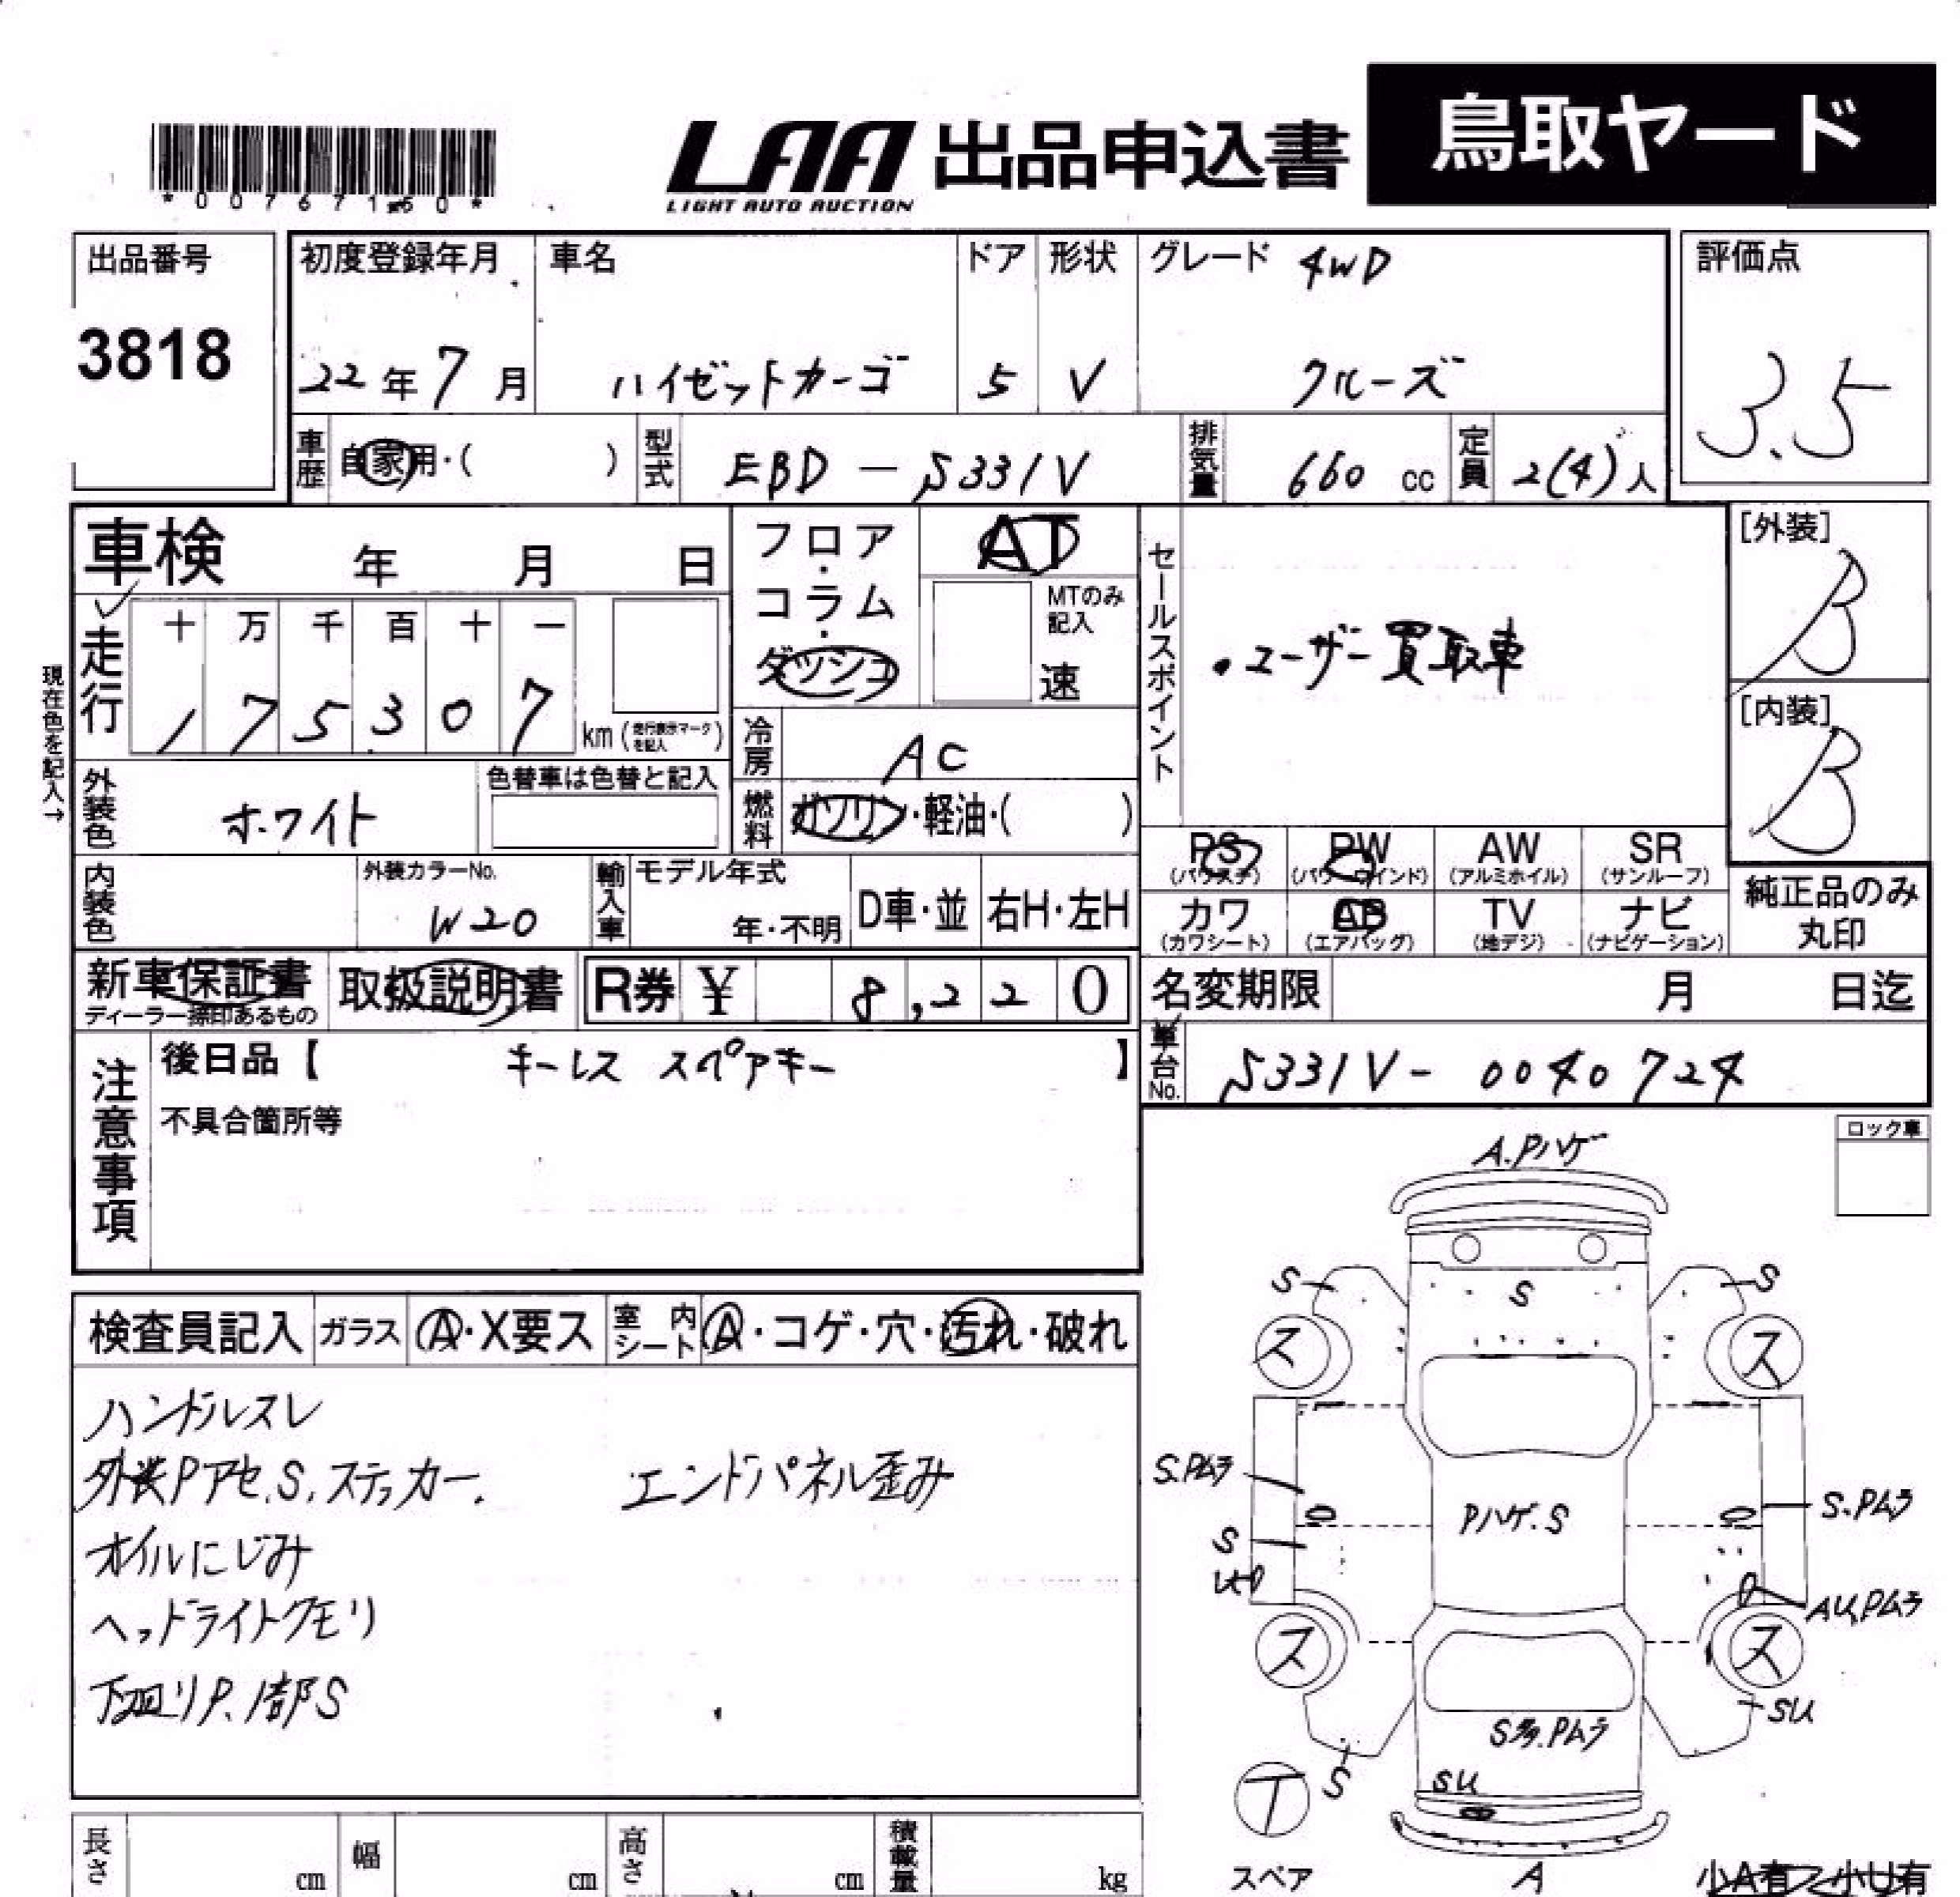 *00767150*
LAA 出品申込書 鳥取ヤード
LIGHT AUTO AUCTION
出品番号
3818
初度登録年月
22年7月
車名
ハイゼットカーゴ
ドア
5
形状
V
グレード 4WD
クルーズ
評価点
3.5
車歴 自家用・( )
型式 EBD-S331V
排気量 660 cc
定員 2(4)人
車検 年 月 日
走行
十 万 千 百 十 一
1 7 5 3 0 7
km(走行表示マークを記入)
現在色を記入→
フロア・コラム・ダッシュ
AT
MTのみ記入
速
冷房 AC
燃料 ガソリン・軽油・( )
セールスポイント
・ユーザー買取車
[外装]
B
[内装]
B
外装色 ホワイト
色替車は色替と記入
内装色
外装カラーNo.
W20
輸入車
モデル年式
年・不明
D車・並
右H・左H
PS (パワステ)
PW (パワーウインド)
AW (アルミホイル)
SR (サンルーフ)
カワ (カワシート)
AB (エアバッグ)
TV (地デジ)
ナビ (ナビゲーション)
純正品のみ
丸印
新車保証書
ディーラー捺印あるもの
取扱説明書
R券 ¥ 8,220
名変期限 月 日迄
車台No. S331V-0040724
注意事項
後日品【 キーレス スペアキー 】
不具合箇所等
ロック車
検査員記入
ガラス A・X要ス
室内シート A・コゲ・穴・汚れ・破れ
ハンドルスレ
外装Pアセ.S.ステッカー.
エンドパネル歪み
オイルにじみ
ヘッドライトクモリ
下廻りP.1部S
A.Pハゲ
S
S
S
ス
ス
S.Pムラ
S
Pハゲ.S
S.Pムラ
AU,Pムラ
ス
ス
SU
S多.Pムラ
SU
S
T
スペア
A
小A有 小U有
長さ cm
幅 cm
高さ cm
積載量 kg